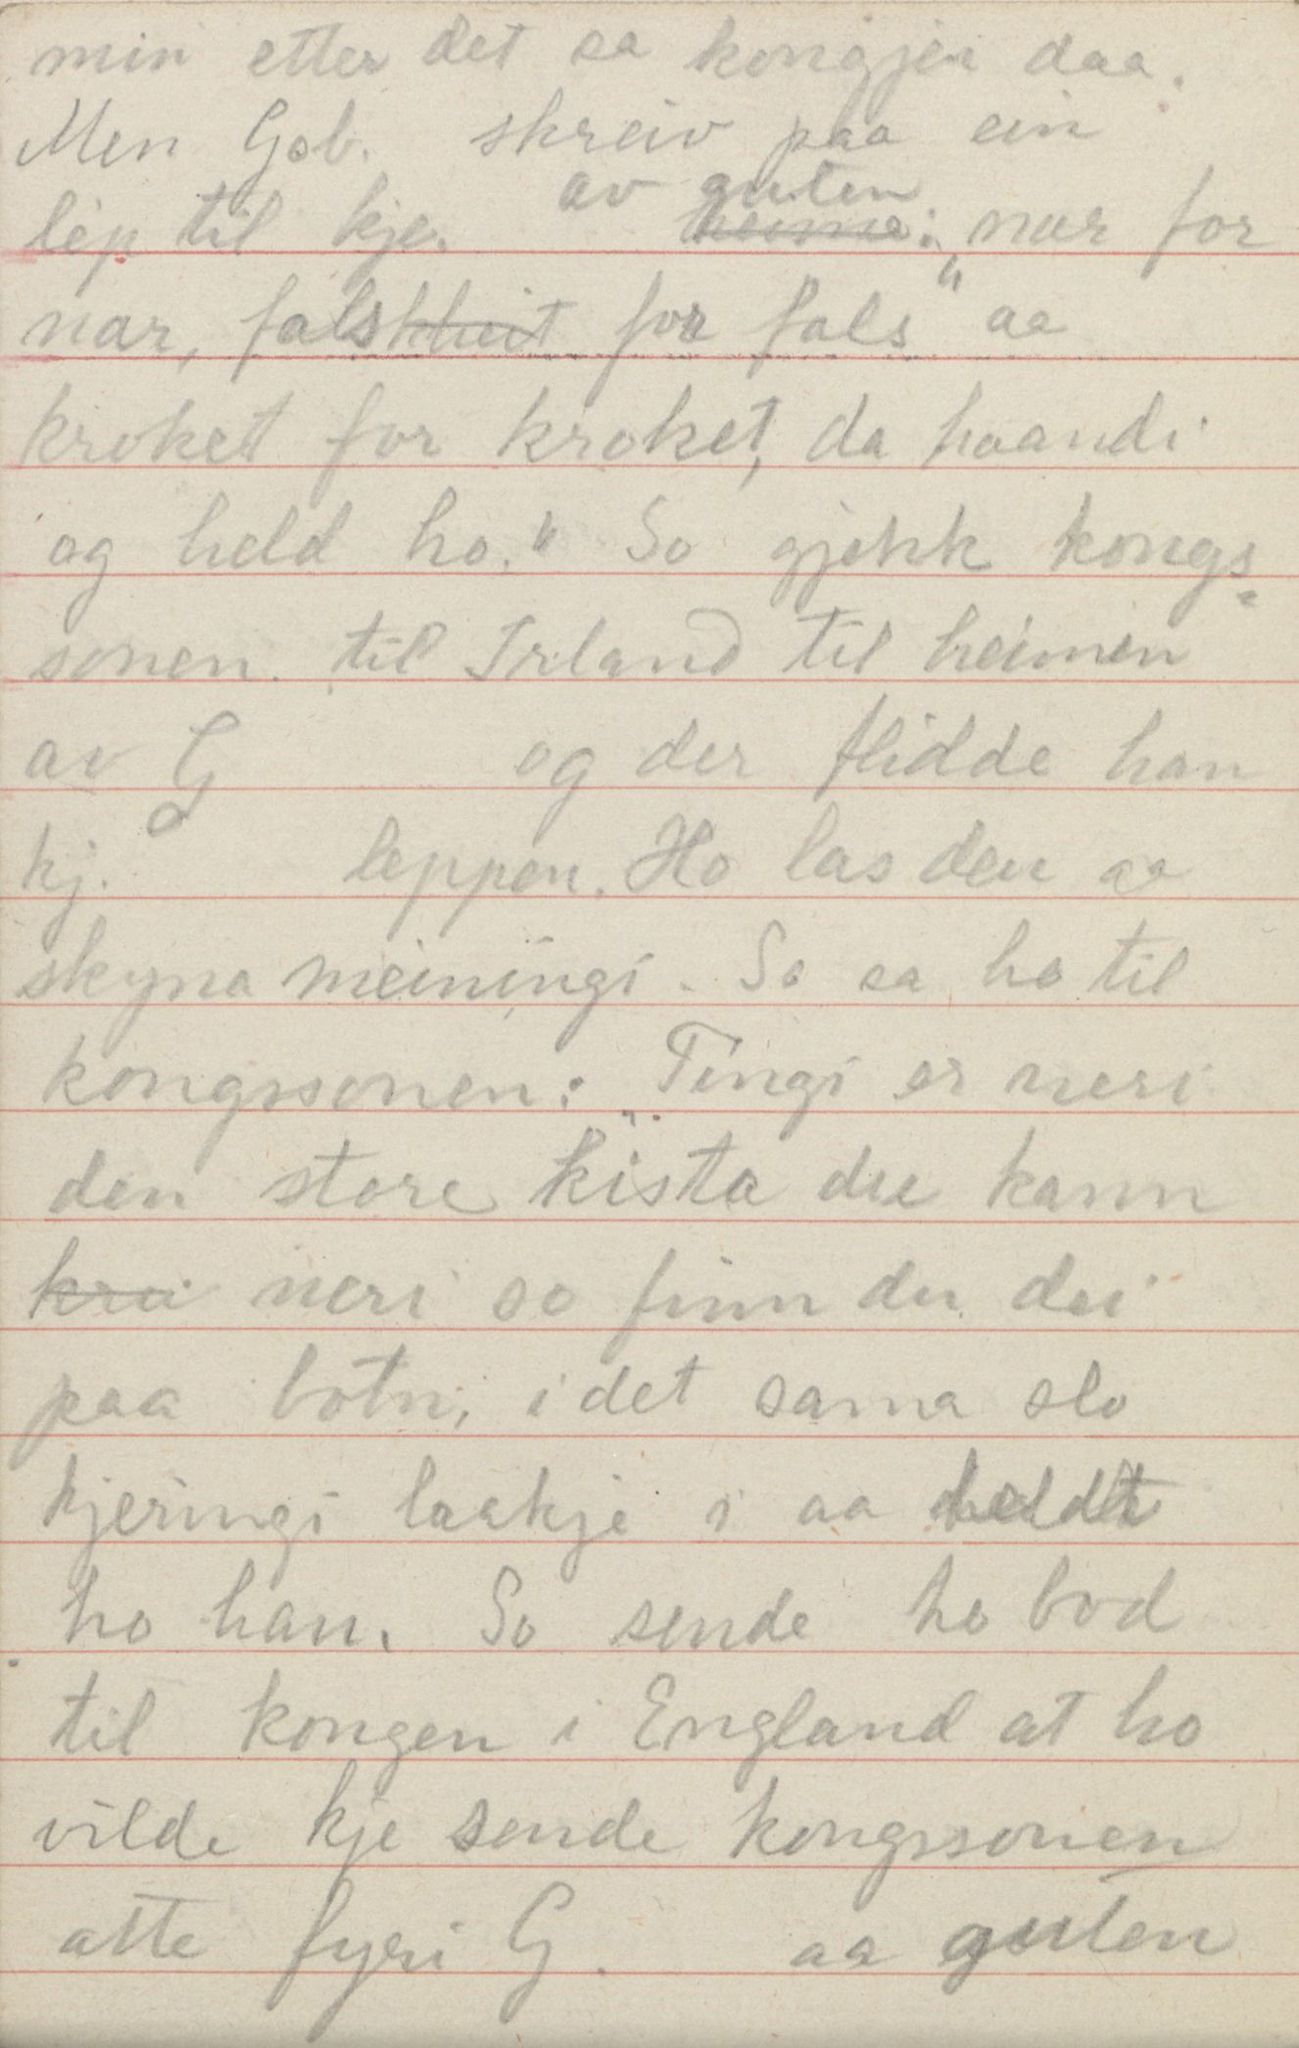 min etter det sa kongjen daa.
Men Gob. skreiv paa ein
av guten
lep til kje. heime: „nar for
nar, falskheit for fals" aa
kroket for kroket, da haandi
og held ho." So gjekk kongs-
sonen til Irland til heimen
av G og der flidde han
kj. leppen. Ho las den aa
skyna meiningi. So sa ho til
kongssonen: „Tingi er neri
den store kista du kann
krai neri so finn du dei
paa botn, i det sama slo
kjeringi laakje i aa heldt
ho han. So sende ho bod
til kongen i England at ho
vilde kje sende kongssonen
atte fyri G. aa guten